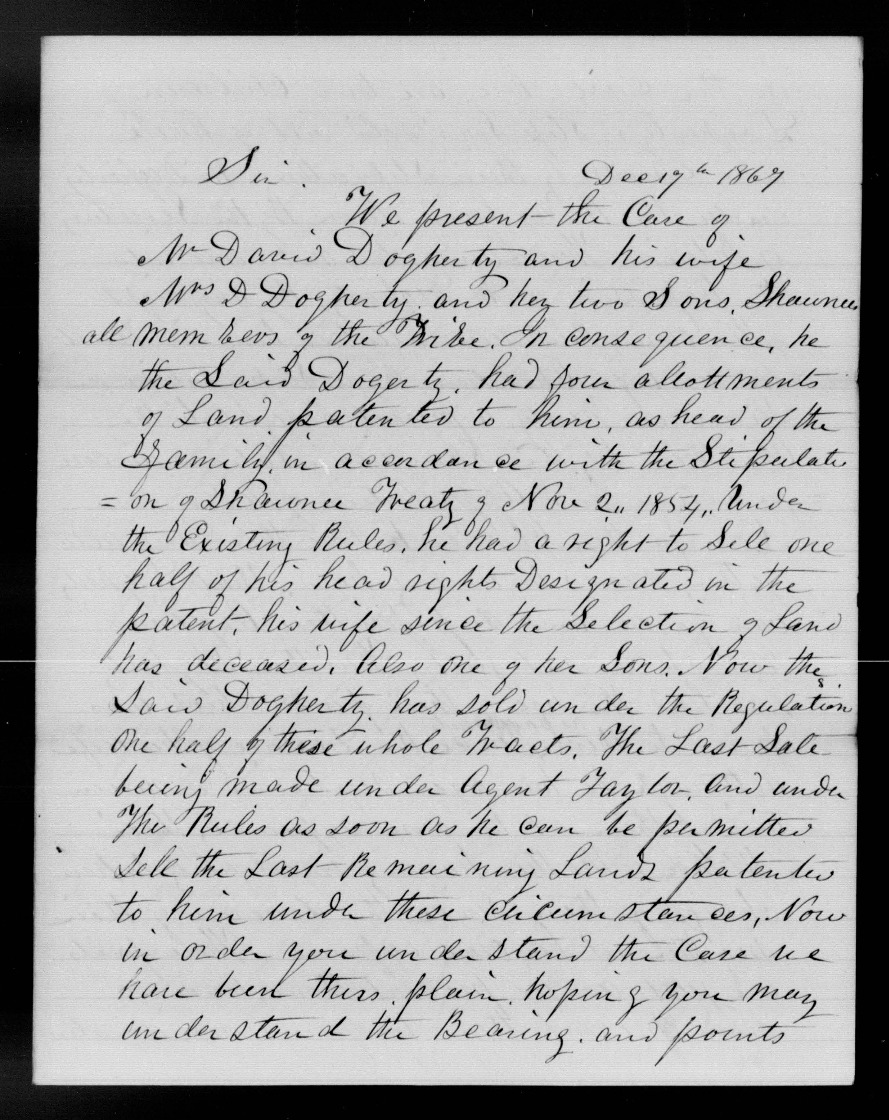 Sir. Dec 17th 1869
We present the Case of
Mr David Dogherty and his wife
Mrs D Dogherty. and her two Sons, Shawnees
all members of the Tribe. In consequence, he
the Said Dogerty. had four allottments
of Land patented to him, as head of the
Family, in accordance with the Stipulati
= on of Shawnee Treaty of Nov 2,, 1854,, Under
the Existing Rules. he had a right to Sele one
half of his head rights Designated in the
patent. his wife since the Selection of Land
has deceased. Also one of her Sons. Now the
Said Dogherty. has sold under the Regulations
One half of these whole Tracts. The Last Sale
being made under Agent Taylor, and under
The Rules as soon as he can be permitted
Sell the Last Remaining Lands patented
to him under these circumstances, Now
in order you understand the Case we
have been thus. plain. hoping you may
understand the Bearing. and points